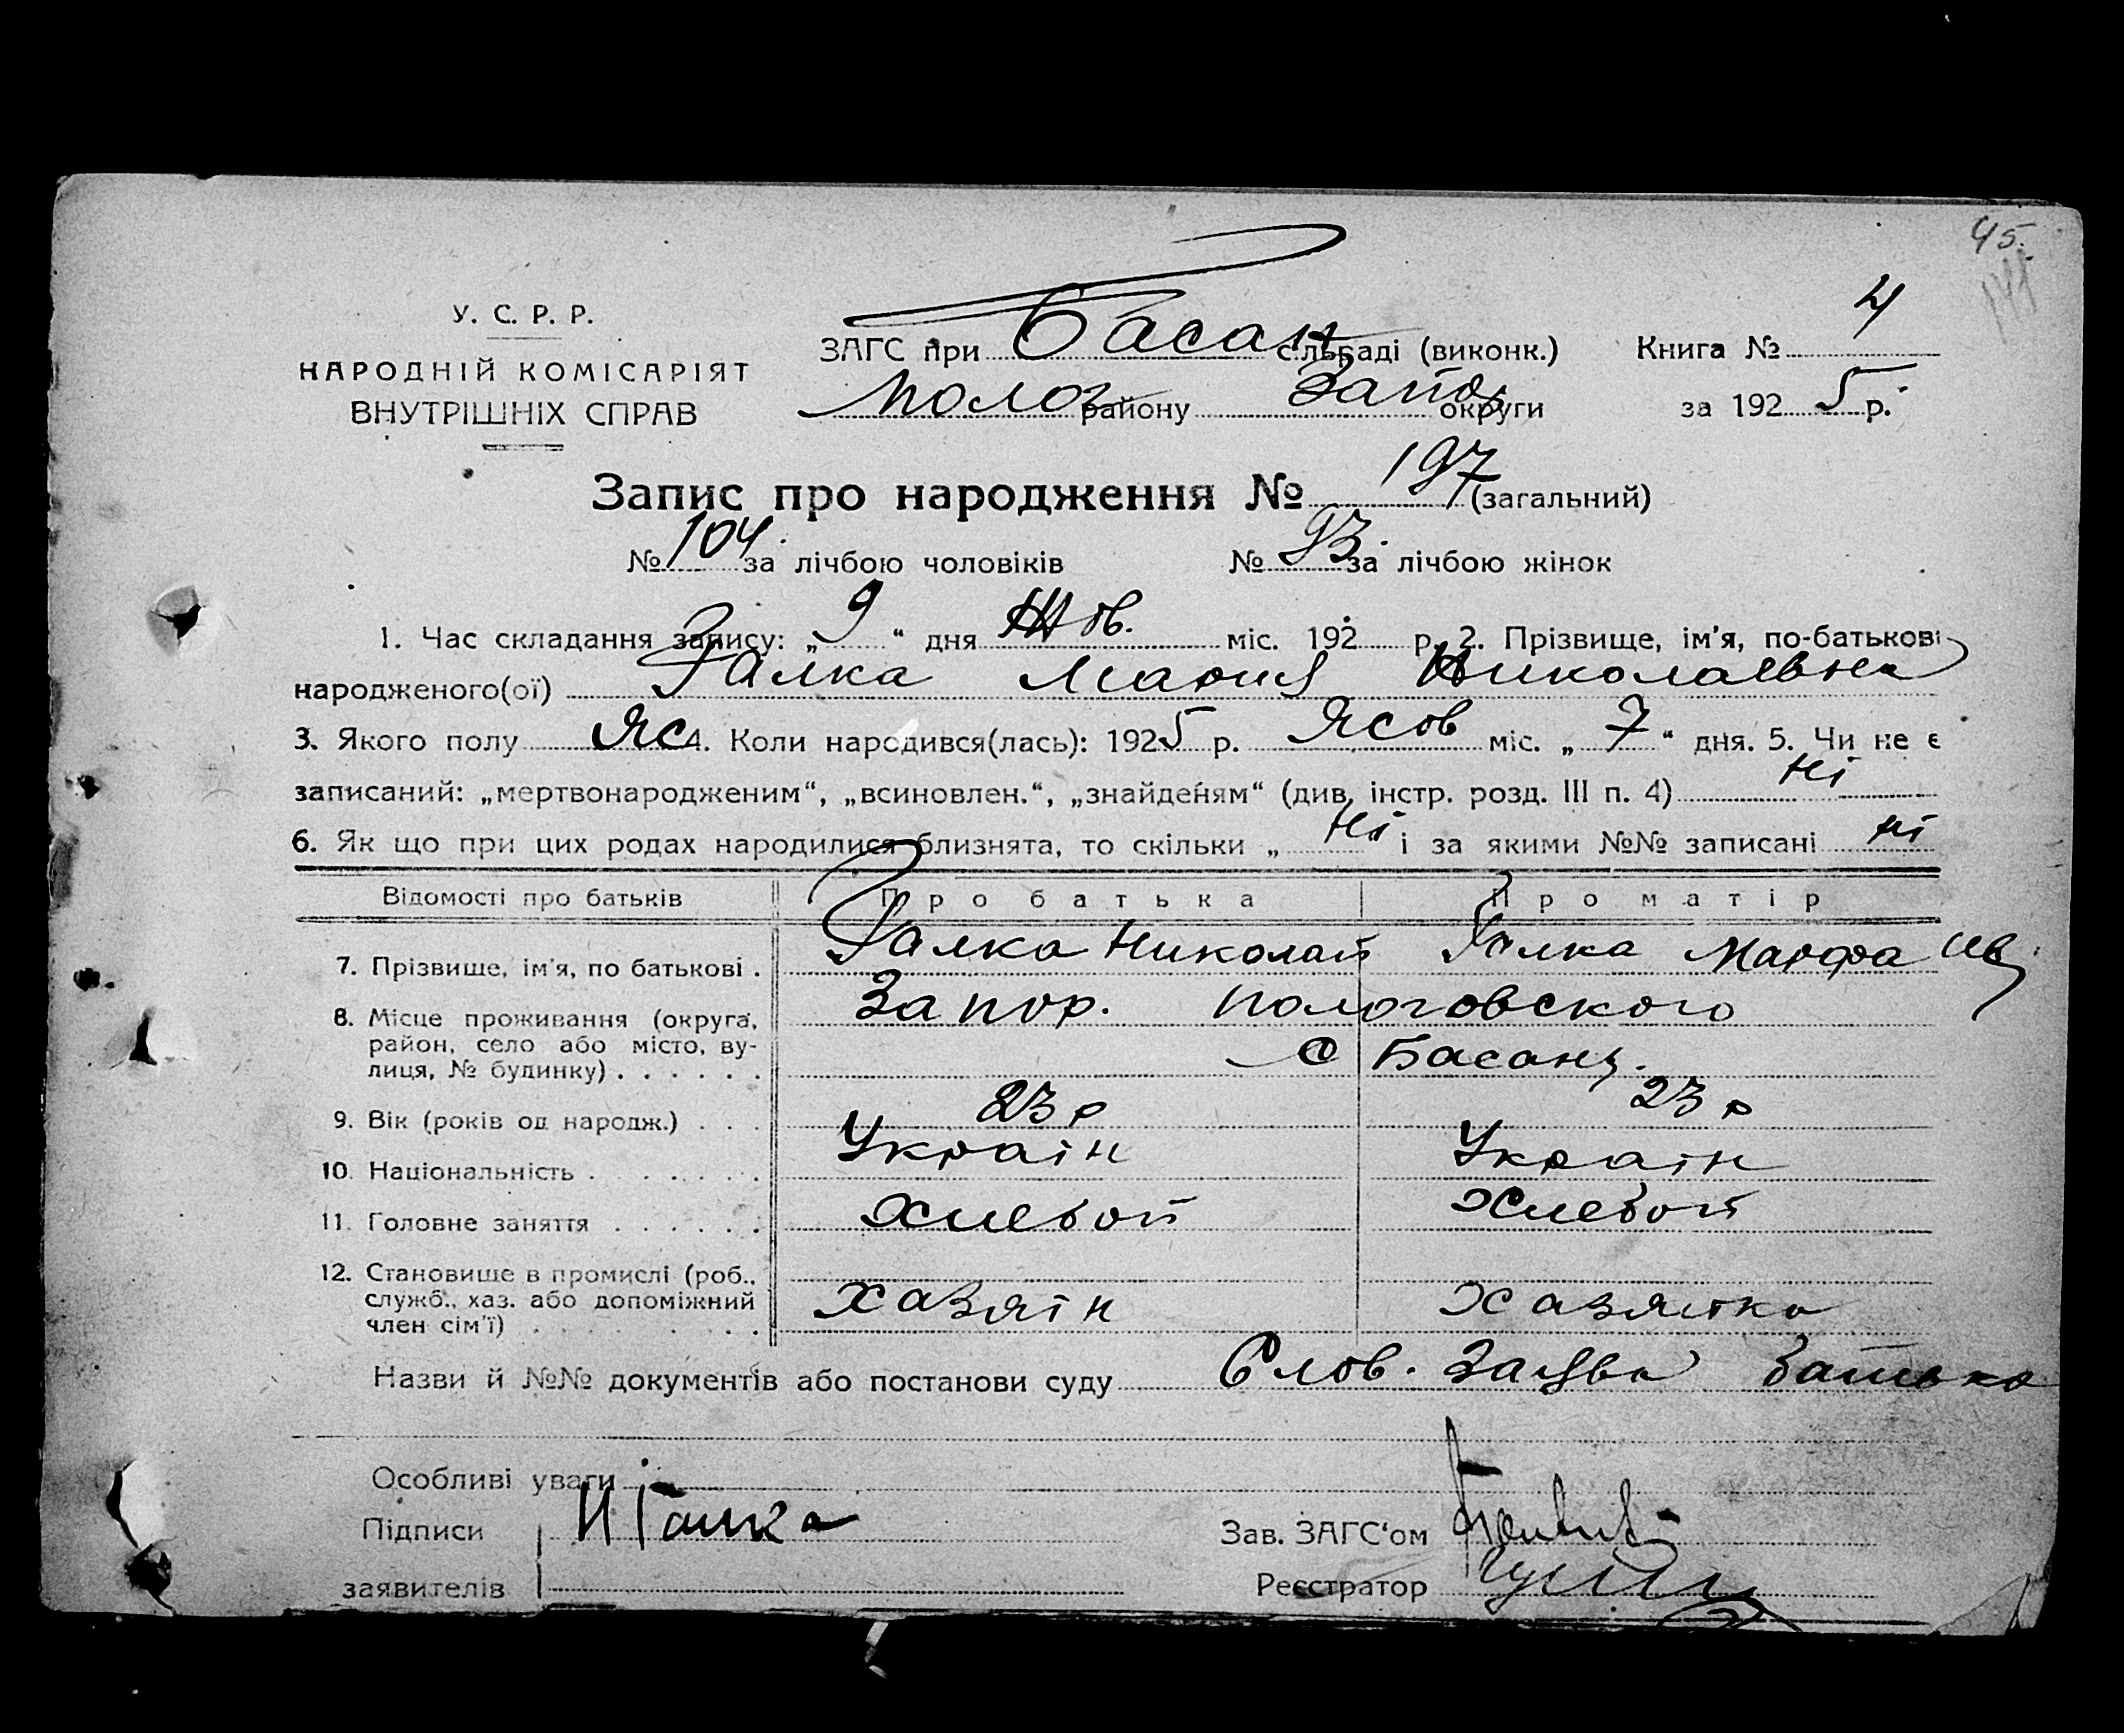 45.
У. С. Р. Р.
НАРОДНІЙ КОМІСАРІЯТ
ВНУТРІШНІХ СПРАВ
ЗАГС при Басан сільраді (виконк.) Книга № 4
Полог району Запор округи за 1925 р.
Запис про народження № 197 (загальний)
№ 104 за лічбою чоловіків № 93 за лічбою жінок
1. Час складання запису: „ 9 “ дня Жов. міс. 192 р. 2. Прізвище, ім’я, по-батькові
народженого(ої) Галка Мария Николаевна
3. Якого полу Ж 4. Коли народився(лась): 1925 р. Жов міс. „ 7 “ дня. 5. Чи не є
записаний: „мертвонародженим“, „всиновлен.“, „знайденям“ (див. інстр. розд. III п. 4) Ні
6. Як що при цих родах народилися близнята, то скільки „ Ні “ і за якими №№ записані ні
Відомості про батьків Про батька Про матір
7. Прізвище, ім’я, по батькові . Галка Николай Галка Марфа Ив
8. Місце проживання (округа, Запор. Пологовского
район, село або місто, ву-
лиця, № будинку) . . . . . . с Басань.
9. Вік (років од народж.) . . . 23 р 23 р
10. Національність . . . . . . Украін Украін
11. Головне заняття . . . . . . Хлебоп Хлебоп
12. Становище в промислі (роб.,
служб., хаз. або допоміжний Хазяін Хазяйка
член сім’ї) . . . . . .
Назви й №№ документів або постанови суду Слов. Заява батька
Особливі уваги
Підписи Н Галка Зав. ЗАГС‘ом
заявителів Реєстратор